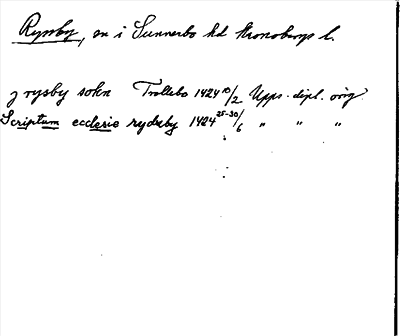 Ryssby, sn i Sunnerbo hd Kronobergs l.
j rysby sokn Trollebo 1424 10/2 Upps. dipl. orig.
Scriptum ecclesie rydzby 1424 25-30/6 " " "